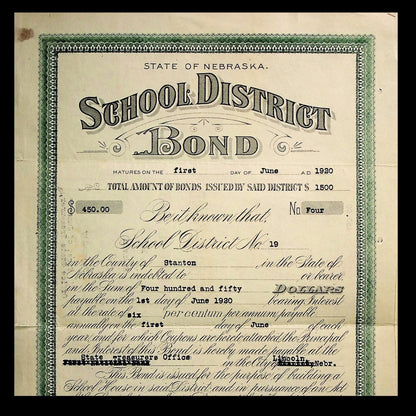 STATE OF NEBRASKA.
SCHOOL DISTRICT
BOND
MATURES ON THE first DAY OF June A.D 1920
TOTAL AMOUNT OF BONDS ISSUED BY SAID DISTRICT $ 1500
$ 450.00 Be it known that, No Four
School District No 19
in the County of Stanton , in the State of
Nebraska is indebted to or bearer
in the Sum of Four hundred and fifty DOLLARS
payable on the 1st day of June 1920 bearing Interest
at the rate of six per centum per annum, payable
annually on the first day of June of each
year, and for which Coupons are hereto attached, the Principal
and Interest of this Bond is hereby made payable at the
State Treasurers Office in the City of Lincoln, Nebr.
This Bond is issued for the purpose of building a
School House in said District, and in pursuance of an Act